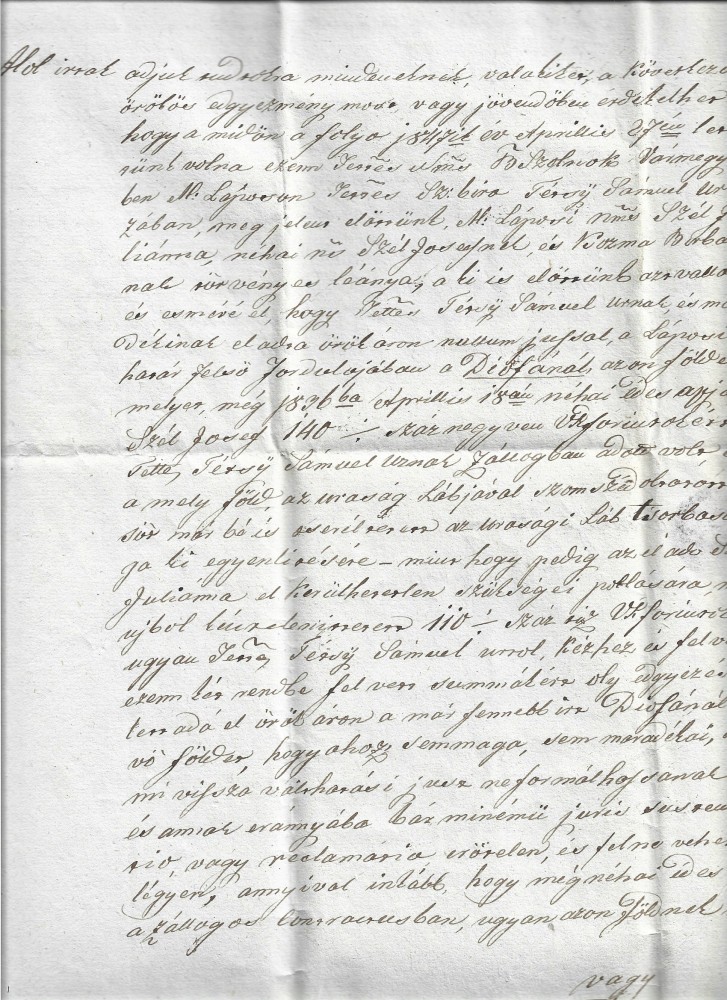 Alol irrak adjuk tudtokra mindeneknek, valakiket, a Következe
örökös egyezmény most, vagy jövendőben érdekelhet
hogy a midőn a folyo 1847ik év Aprillis 27én
tünk volna ezenn Ttes Nms BSzolnok Vármegy
ben M: Láposon Ttes Sz: biro Térsÿ Sámuel Ur
zában, meg jelent előttünk, M: Láposi Szél
liánna, néhai ns Szél Josefnek, és Kozma Borba
nak törvényes léánya, a ki is előttünk azt vallo
és esméré el, hogy Tettes Térsÿ Sámuel Urnak, és m
dékinak el adta örök áron nullum jussal, a Láposi
határ felső Fordulojában a Diófánál, azon földe
melyet, még 1836ba Aprillis 18án néhai édes apja
Szél Josef 140 ./. száz negyven Vforintokért
Tette Térsÿ Sámuel Urnak Zállogban adott volt
a mely föld, az uraság Lábjával szomszédolt
már bé is az urasági Láb tsorbas
ja ki egyenlitésére – miut hogy pedig az el ado
Julianna el kerülhetetlen szükségei potlására,
ujbol 110 ./. száz tiz Vforintot
ugyan Ttes Térsÿ Sámuel urtol, kézhez és fel v
ezenn két rendbe fel vett summákért oly edgyeze
tett adá el örök áron a már fennebb irt Diofánál
vő földet, hogy ahozz semmaga, sem maradékai,
mi vissza válthatási just ne formálhassanak
és annak erannyába bár minémü juris
tio, vagy reclamatio erőtelen, és fel ne vehe
légyen, annyival inkább, hogy még néhai édes
a zállogos Contractusban, ugyan azon földnek
vagy